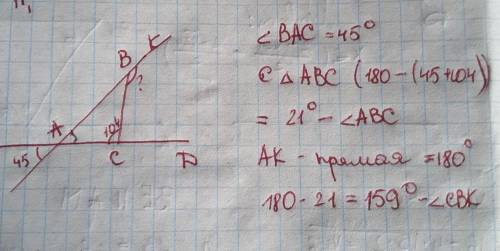 K
B
?
A
104
45
C
D
∠BAC = 45°
C △ ABC (180-(45+104))
= 21° - ∠ABC
AK - прямая = 180°
180 - 21 = 159° - ∠CBK